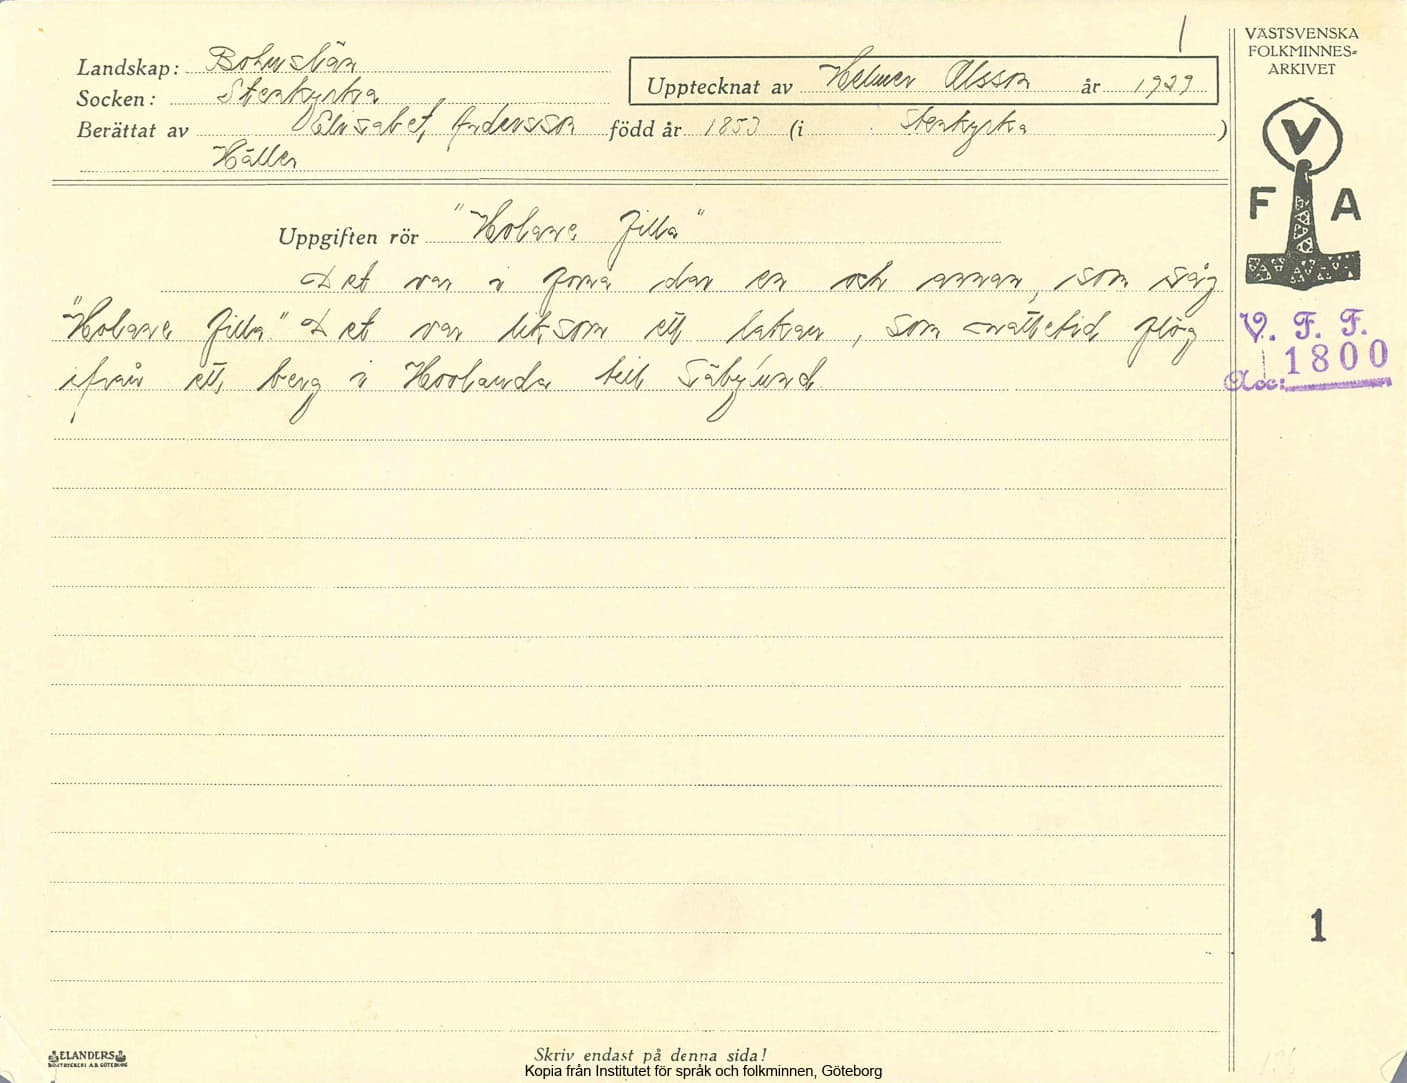 1
VÄSTSVENSKA
FOLKMINNES-
ARKIVET
Landskap: Bohuslän
Upptecknat av Helmer Olsson år 1929
Socken: Stenkyrka
Berättat av Elisabet Andersson född år 1853 (i Stenkyrka)
Häller
V
F A
Uppgiften rör "Holane Jilla"
Det var i forna dar en och annan, som såg
"Holane Jilla." Det var liksom ett lakan, som nattetid flög
ifrån ett berg i till Säbysund
V. F. F.
Acc: 1800
1
ELANDERS
BOKTRYCKERI A.B. GÖTEBORG
Skriv endast på denna sida!
Kopia från Institutet för språk och folkminnen, Göteborg